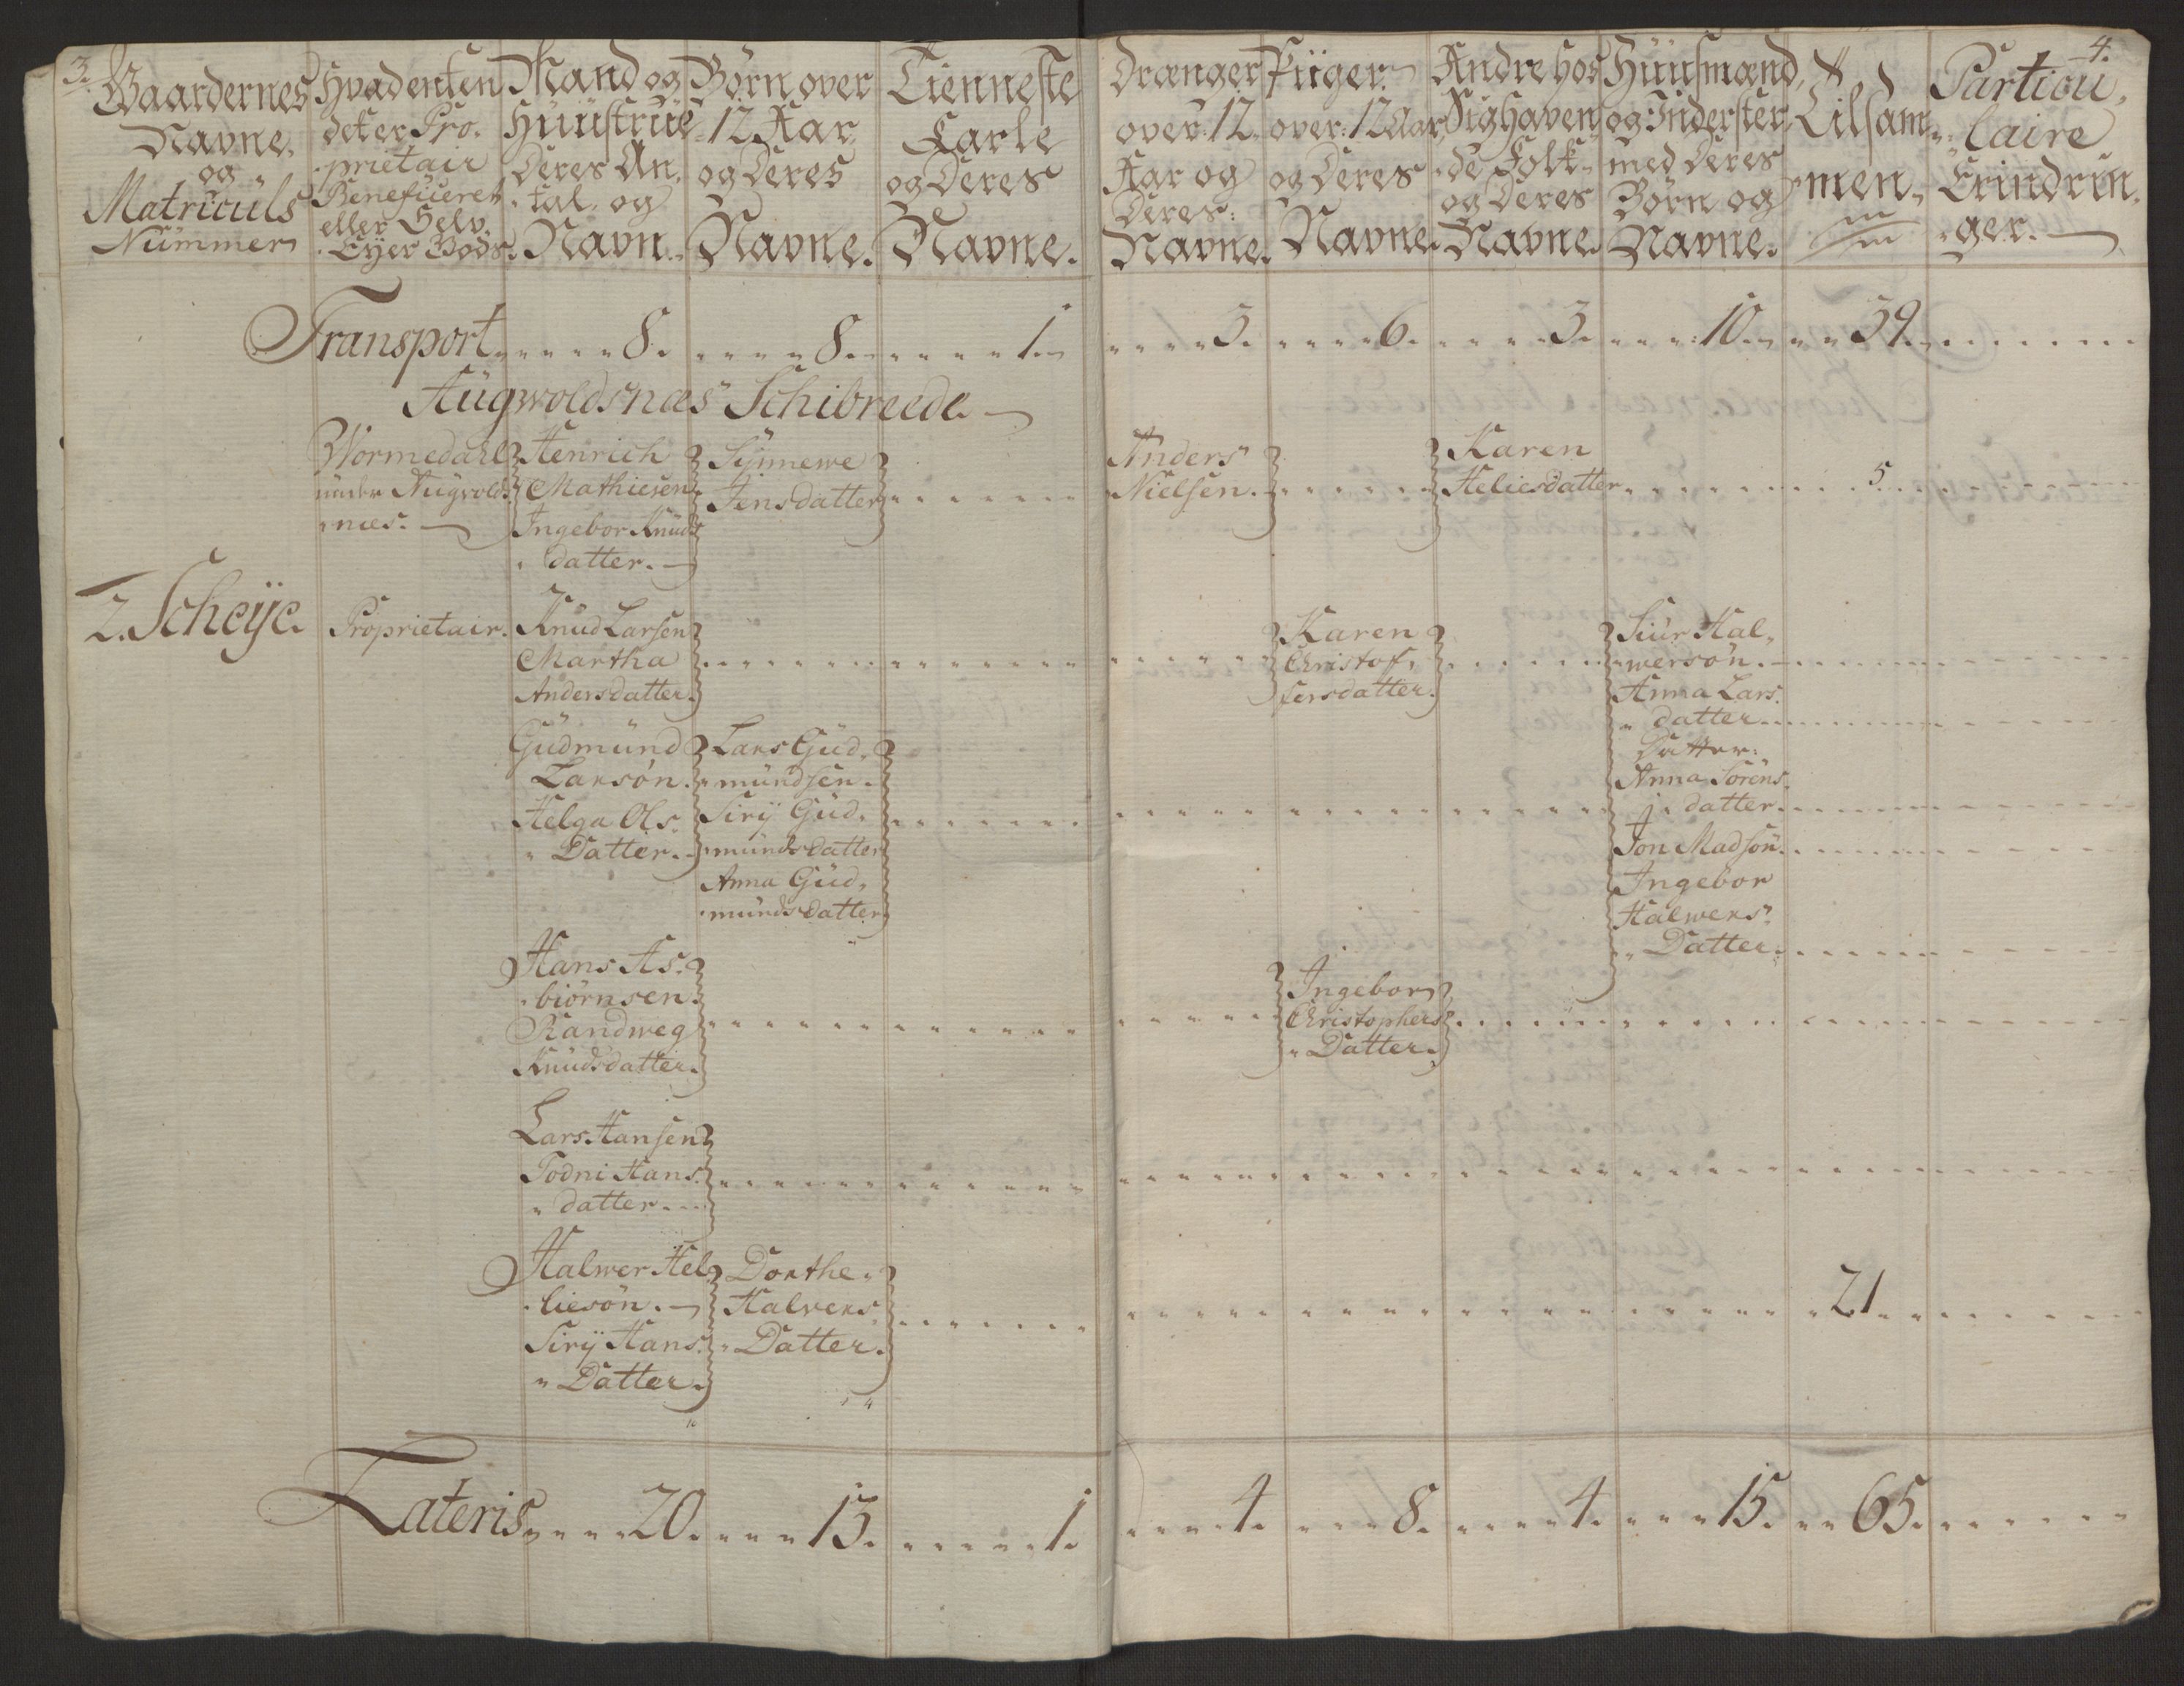 3.
Gaardernes
Navne,
og
Matriculs
Nümmer
Hvadenten
det er Pro.
prietair
Beneficeret
eller Selv.
Eyer Bods.
Mand og
Hüüstrüe
Deres An,
tal, og
Navn.
Børn over
12 Aar
og Deres
Navne.
Tienneste
Carle
og Deres
Navne.
Drænger
over 12
Aar og
Deres:
Navne.
Piiger
over 12 Aar
og Deres
Navne.
Andre hos
Sig haven,
de Folk
og Deres
Navne.
Hüüsmænd,
og Inderster,
med Deres
Børn og
Navne.
Tilsam,
men,
4.
Particu,
laire
Erindrin,
ger.
Transport 8. 8. 1 3. 6. 3. 10. 39.
Augwoldsnæs Schibreede.
Wormedahl
under Augvolds
næs.
Henrich
Mathiesen
Ingebor Knüds
datter.
Synnewe
Jensdatter
Anders
Nielsen.
Karen
Heliesdatter
5
2. Scheÿe.
Proprietair.
Knud Larsen
Martha
Andersdatter.
Karen
Christof,
fersdatter.
Siur Hal,
wersøn.
Anna Lars.
datter
Datter:
Anna Sørens.
datter
Jon Madsøn.
Ingebor
Halwers
Datter.
Güdmünd
Larsøn.
Helga Ols.
Datter.
Lars Güd,
mündsen.
Sirÿ Güd,
mündsdatter
Anna Güd,
mündsdatter
Hans As.
biörnsen.
Randweg
Knüdsdatter.
Ingebor
Christophers
Datter.
Lars Hansen
Todni Hans.
datter.
Halwer Hel,
liesön.
Sirÿ Hans.
Datter.
Dorthe
Halvers
Datter.
21
Lateris 20. 13. 1. 4. 8. 4. 15. 65.